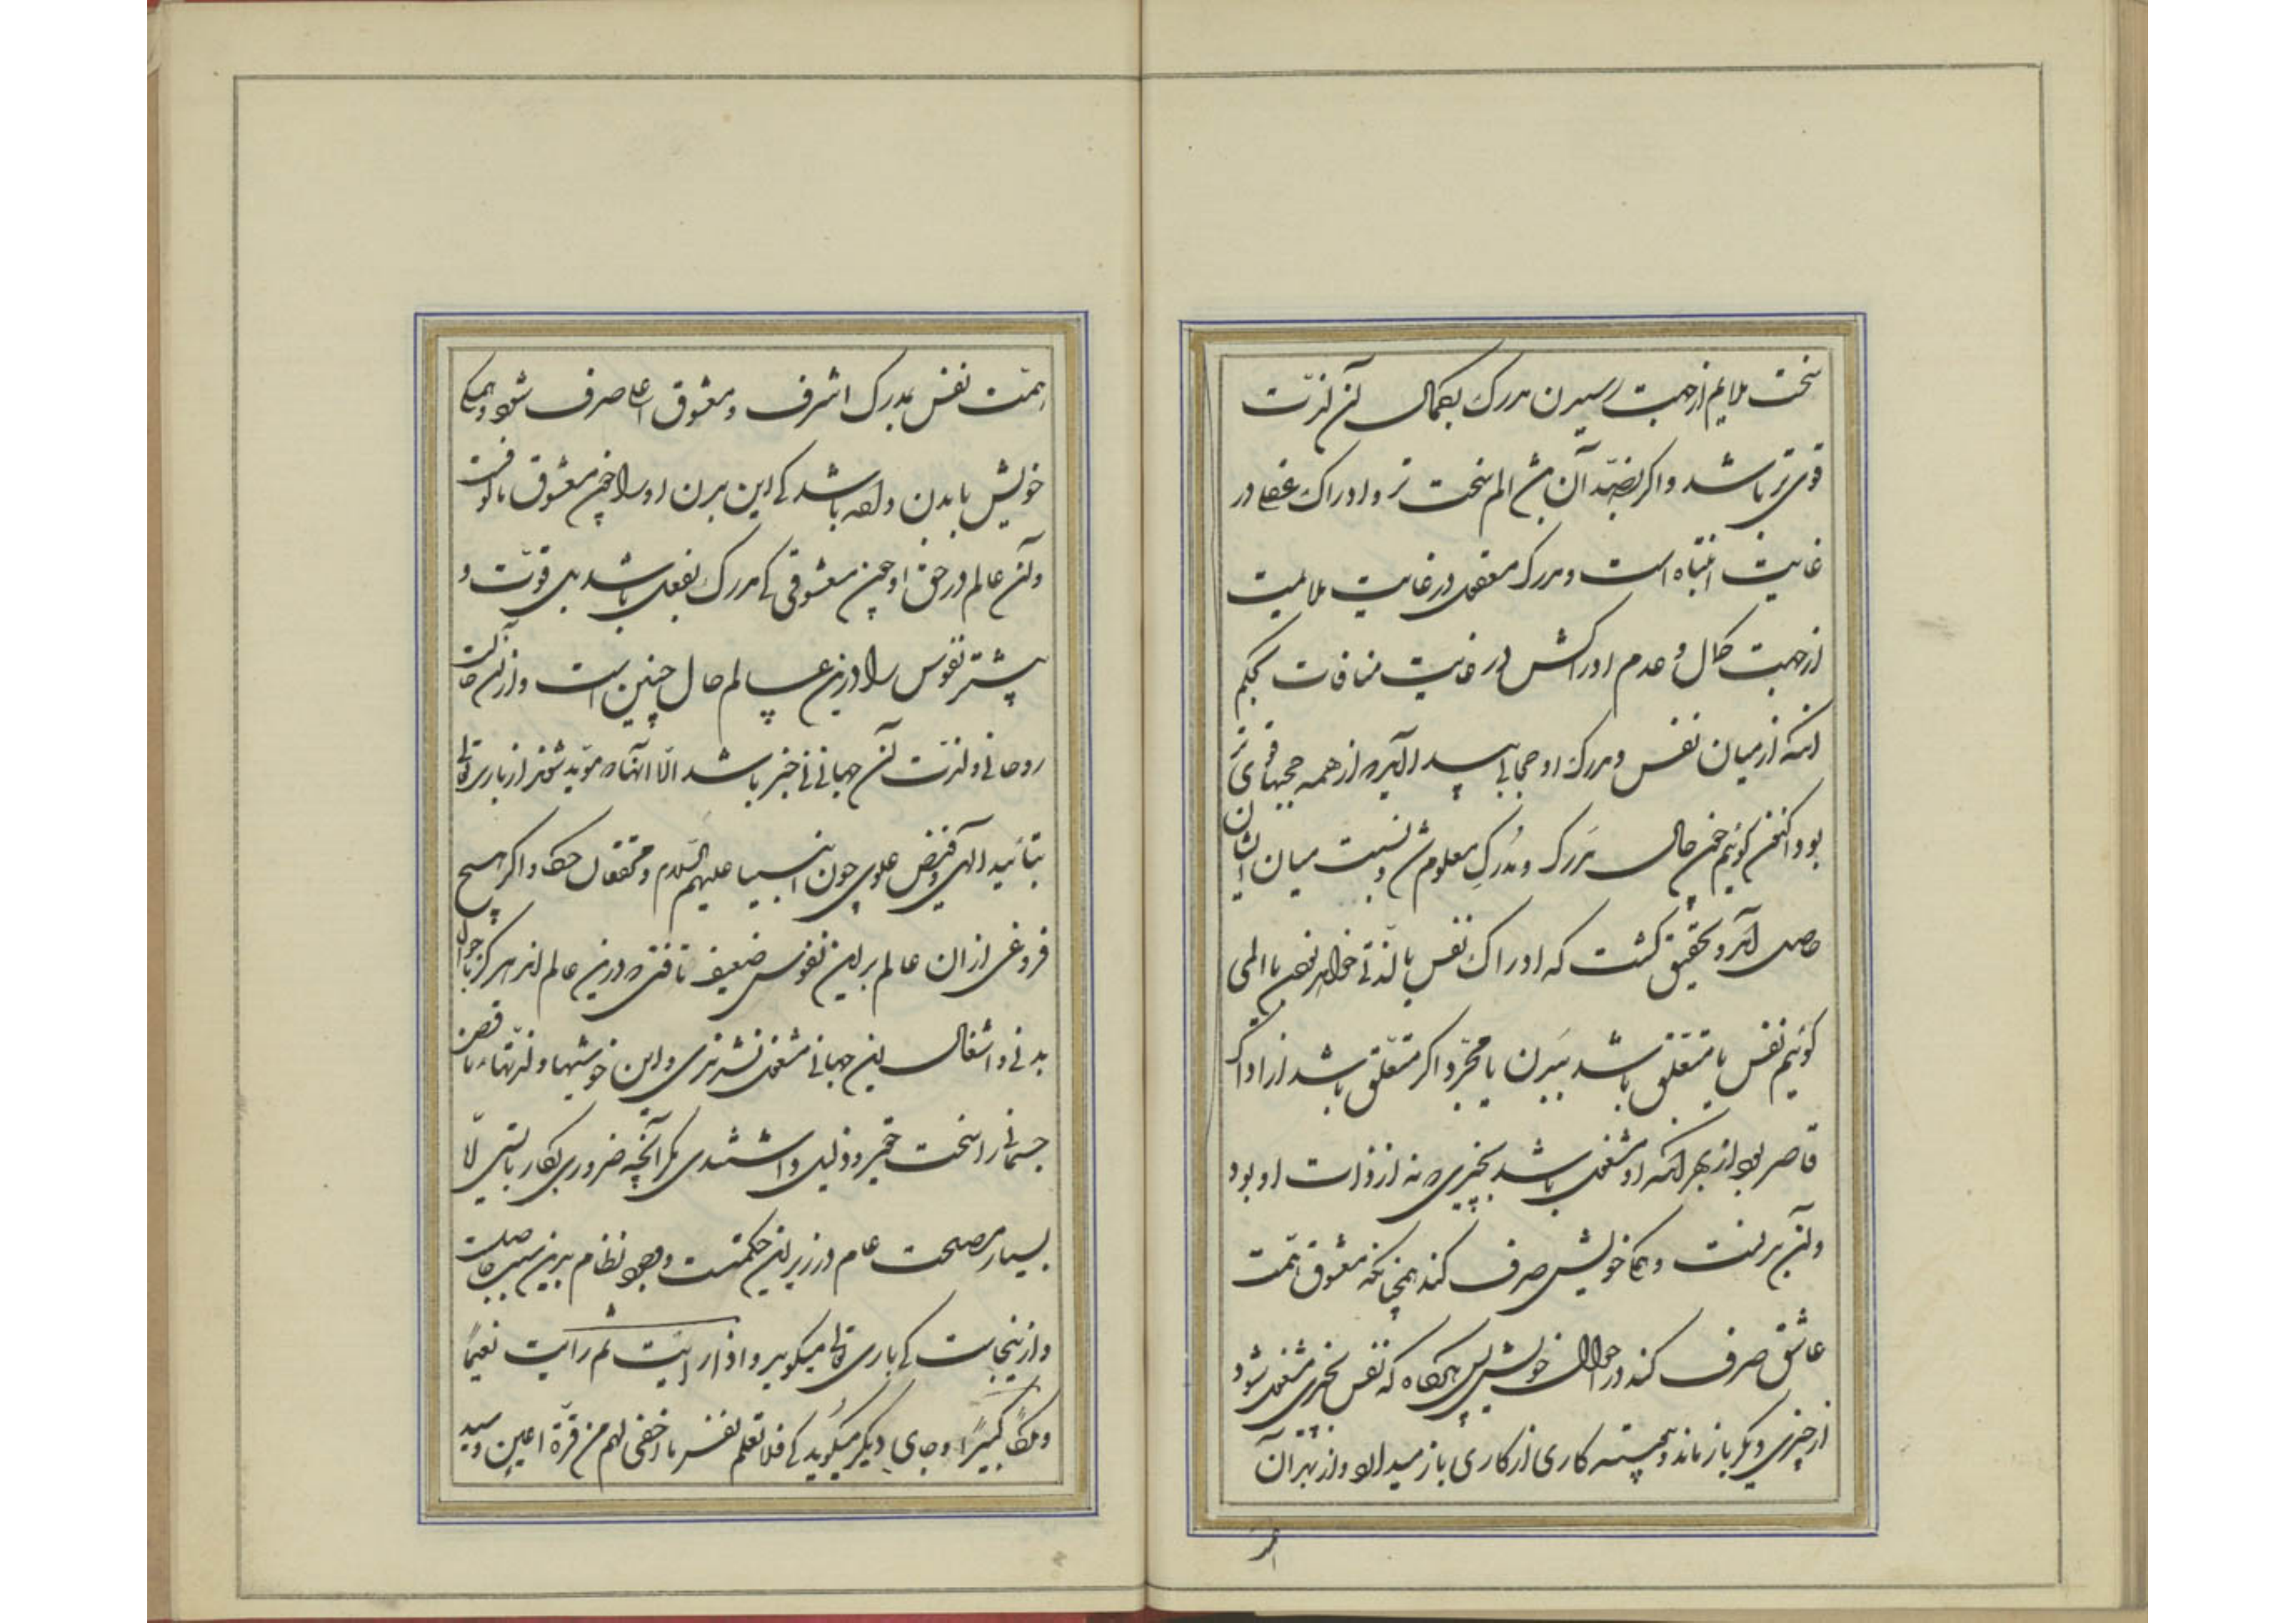 سخت ملایم از جهت رسیدن مدرک بکمال آن لذت
قوی تر باشد و اکر بضد آن بود الم سخت تر و ادراک عقلی در
غایت انتباه است و مدرک معقول در غایت ملایمت
از جهت کمال و عدم ادراکش در غایت منافات بحکم
انکه از میان نفس و مدرک او حجابی پدید آید که از همه حجبها قوی تر
بود اکنون کوئیم چون حال مَدرک و مُدرِک معلوم شد و نسبت میان ایشان
حاصل آمد و تحقیق کشت که ادراک نفس یا لذتی خواهد بودن یا المی
کوئیم نفس یا متعلق باشد ببدن یا مجرد و اکر متعلق باشد از ادراک
قاصر بود از بهر آنکه او مشغول باشد بچیزی که نه از ذات او بود
و آن بدنست و همکی خویش صرف کند همچنانکه معشوق همت
عاشق صرف کند در احوال خویش پس هرکاه که نفس بچیزی مشغول شود
از چیزی دیگر باز ماند و همیشه کاری از کاری باز میدارد و از بهر آن
همت نفس بمدرک اشرف و معشوق اعلی صرف نشود و همکی
خویش با بدن داده باشد که این بدن او را چون معشوق بالقوتست
و آن عالم در حق او چون معشوقی که مدرک بفعل باشد بی قوت و
بیشتر نفوس را درین عالم حال چنین است و از آن حالت
روحانی و لذت آن جهانی بی خبر باشد الا آنها که موید شوند از باری تعالی
بتائید الهی و فیض علوی چون انبیا علیهم السلام و محققان حکما و اکر هیچ
فروغی از ان عالم بر این نفوس ضعیف تافتی که درین عالم اند هرکز باحوال
بدنی و اشغال این جهانی مشغول نشدندی و این خوشیها و لذتهاء ناقص
جسمانی را سخت حقیر و ذلیل داشتندی مکر آنچه ضروری بکار بایستی الّا
بسیار مصلحت عام در زیر این حکمتست و وجود نظام بدین سبب حاصلست
و از ینجاست که باری تعالی میکوید و اذا رایت ثم رایت نعیمًا
و ملکًا کبیرًا و جای دیکر میکوید که فلا تعلم نفس ما اخفی لهم من قرّة اعین و سید